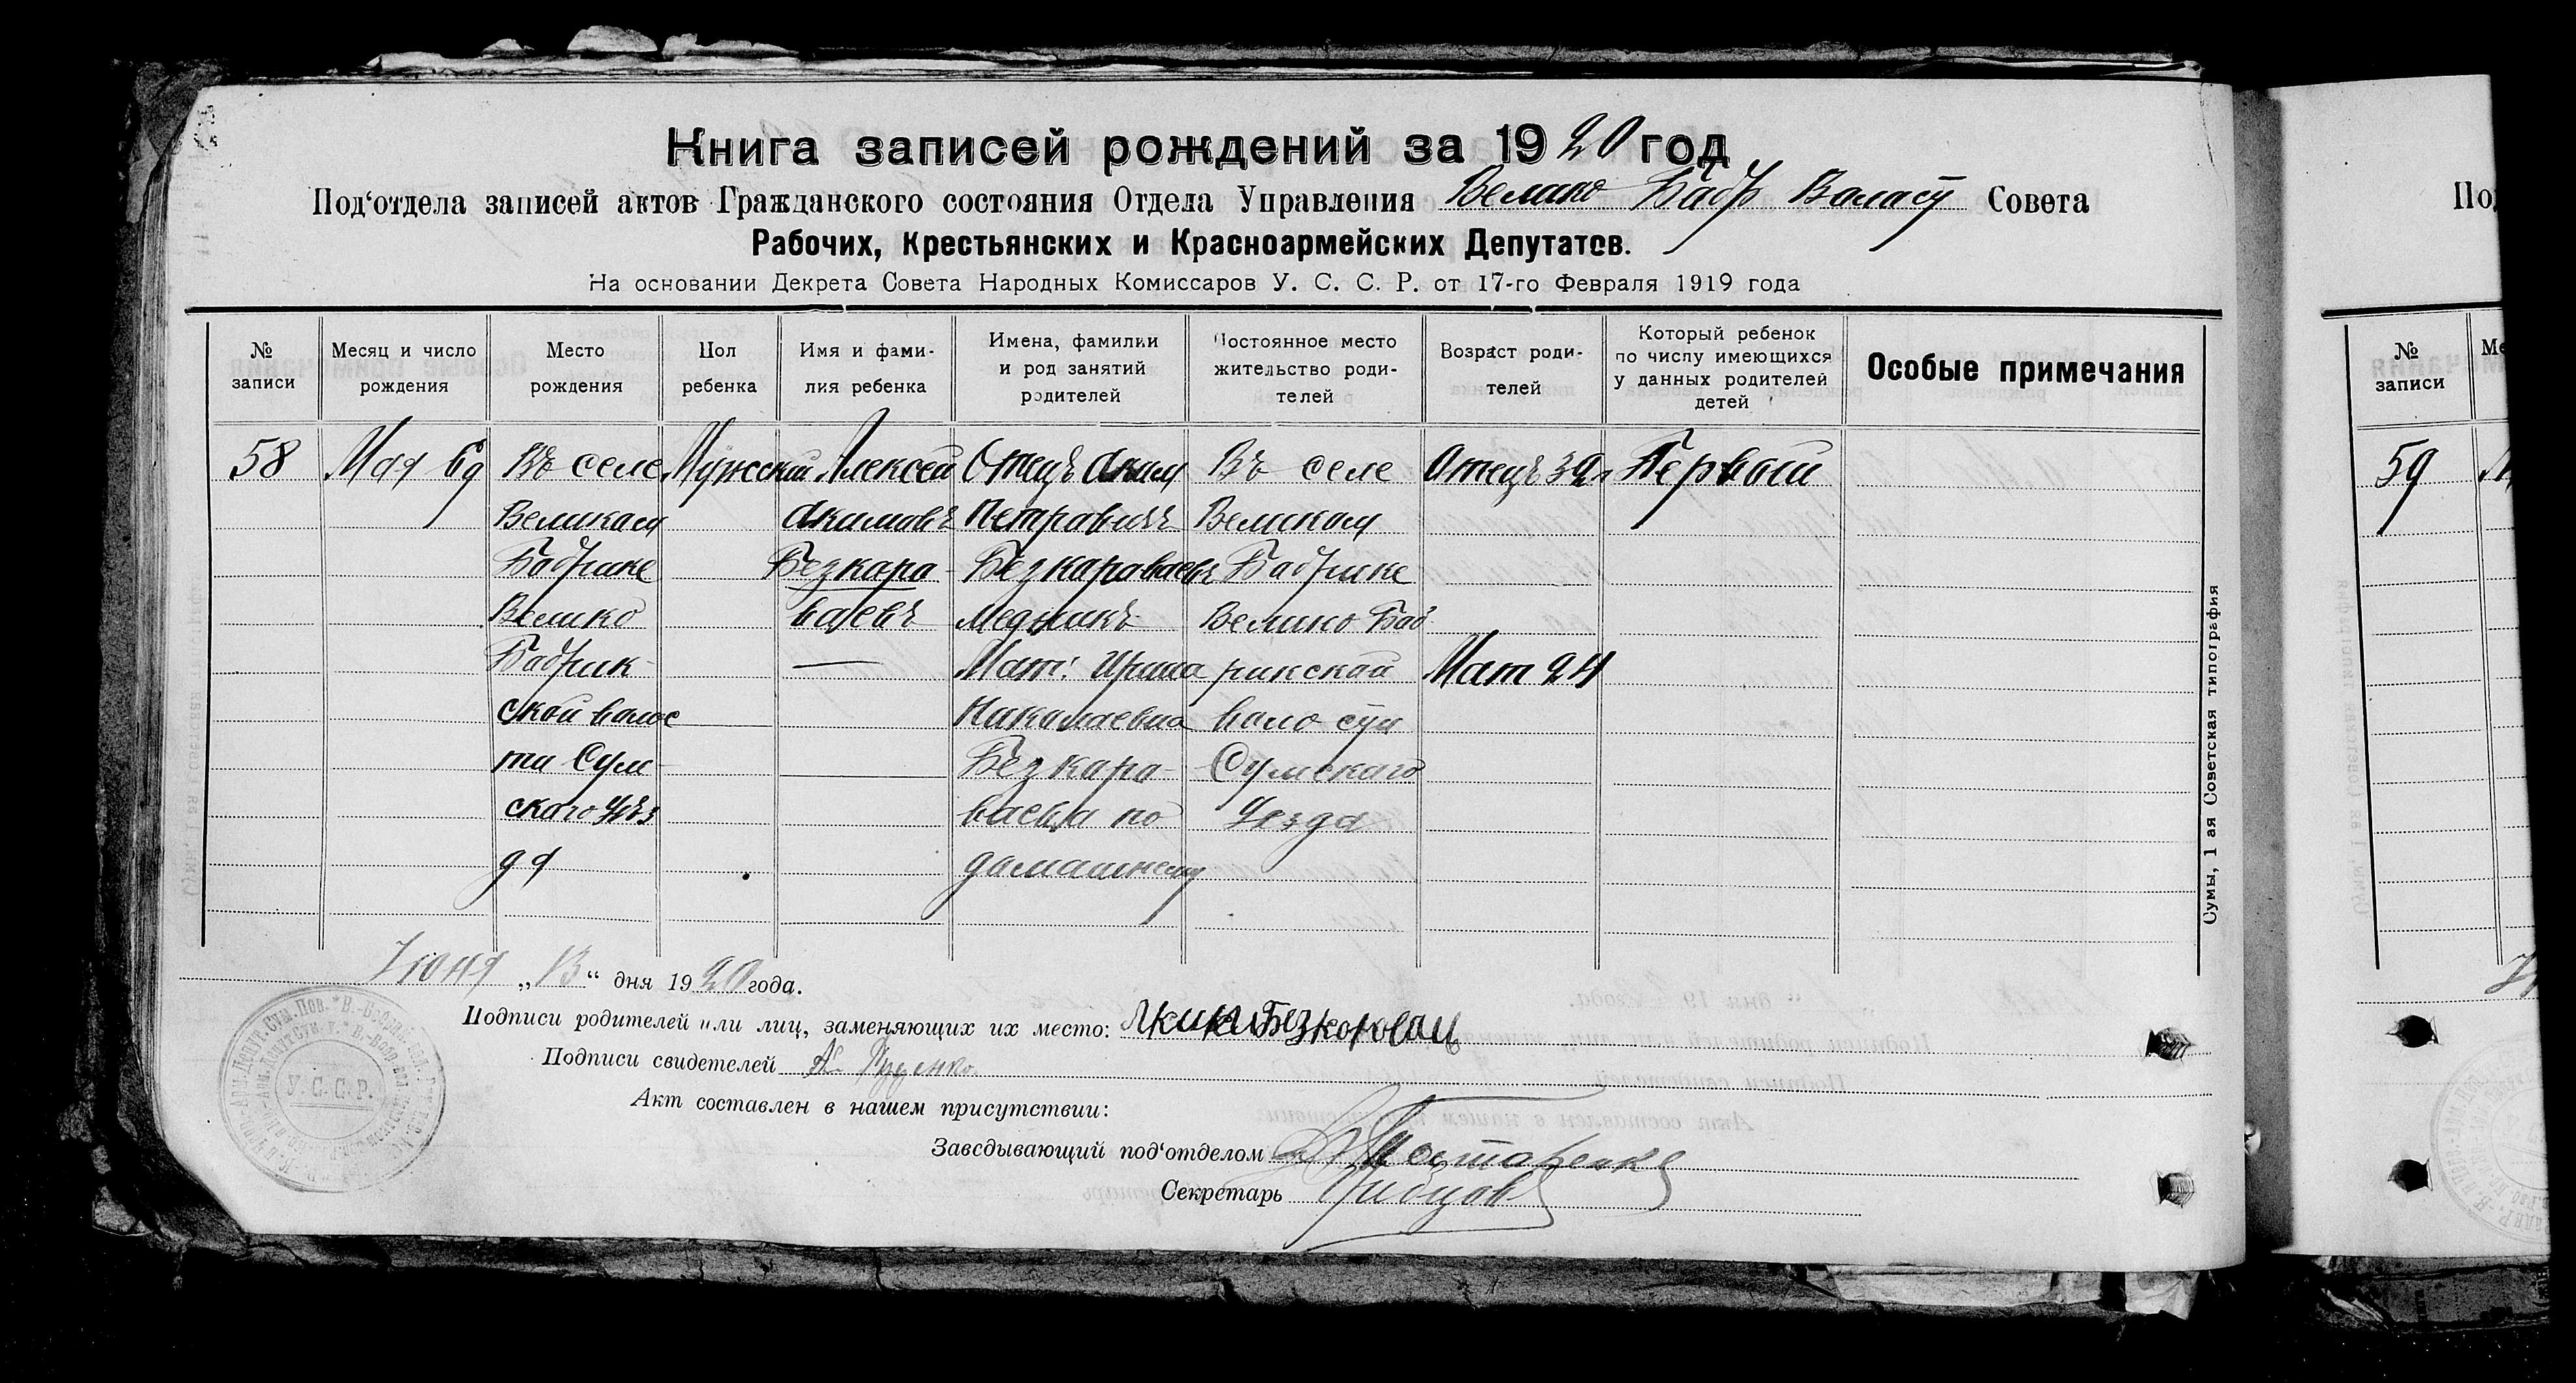 Книга записей рождений за 1920 год
Под‘отдела записей актов Гражданского состояния Отдела Управления Велико Бобр Совета
Рабочих, Крестьянских и Красноармейских Депутатов.
На основании Декрета Совета Народных Комиссаров У. С. С. Р. от 17-го Февраля 1919 года
№ записи
Месяц и число рождения
Место рождения
Пол ребенка
Имя и фами-
лия ребенка
Имена, фамилии
и род занятий
родителей
Постоянное место
жительство роди-
телей
Возраст роди-
телей
Который ребенок
по числу имеющихся
у данных родителей
детей
Особые примечания
58
Мая 6д
Въ селе
Великом
Бобрике
Велико
Бобрик-
ской волос
ти Сум-
ского Уѣз
да
Мужской
Алексей
Акимовъ
Безкаро-
ваевъ
Отецъ Аким
Петравичъ
Безкароваевъ
медникъ
Мат: Ирина
Николаевна
Безкаро-
ваева по
домашнему
Въ селе
Великом
Бобрике
Велико Боб
рикской
воло сти
Сумскаго
Уезда
Отецъ 32л
Мат 24
Первый
Июня „13“ дня 1920 года.
Подписи родителей или лиц, заменяющих их место: Аким Безкоровай
Подписи свидетелей
Акт составлен в нашем присутствии:
Заведывающий под‘отделом
Секретарь
У.С.С.Р.
Сумы, 1 ая Советская типография
По
№ записи
Ме
59